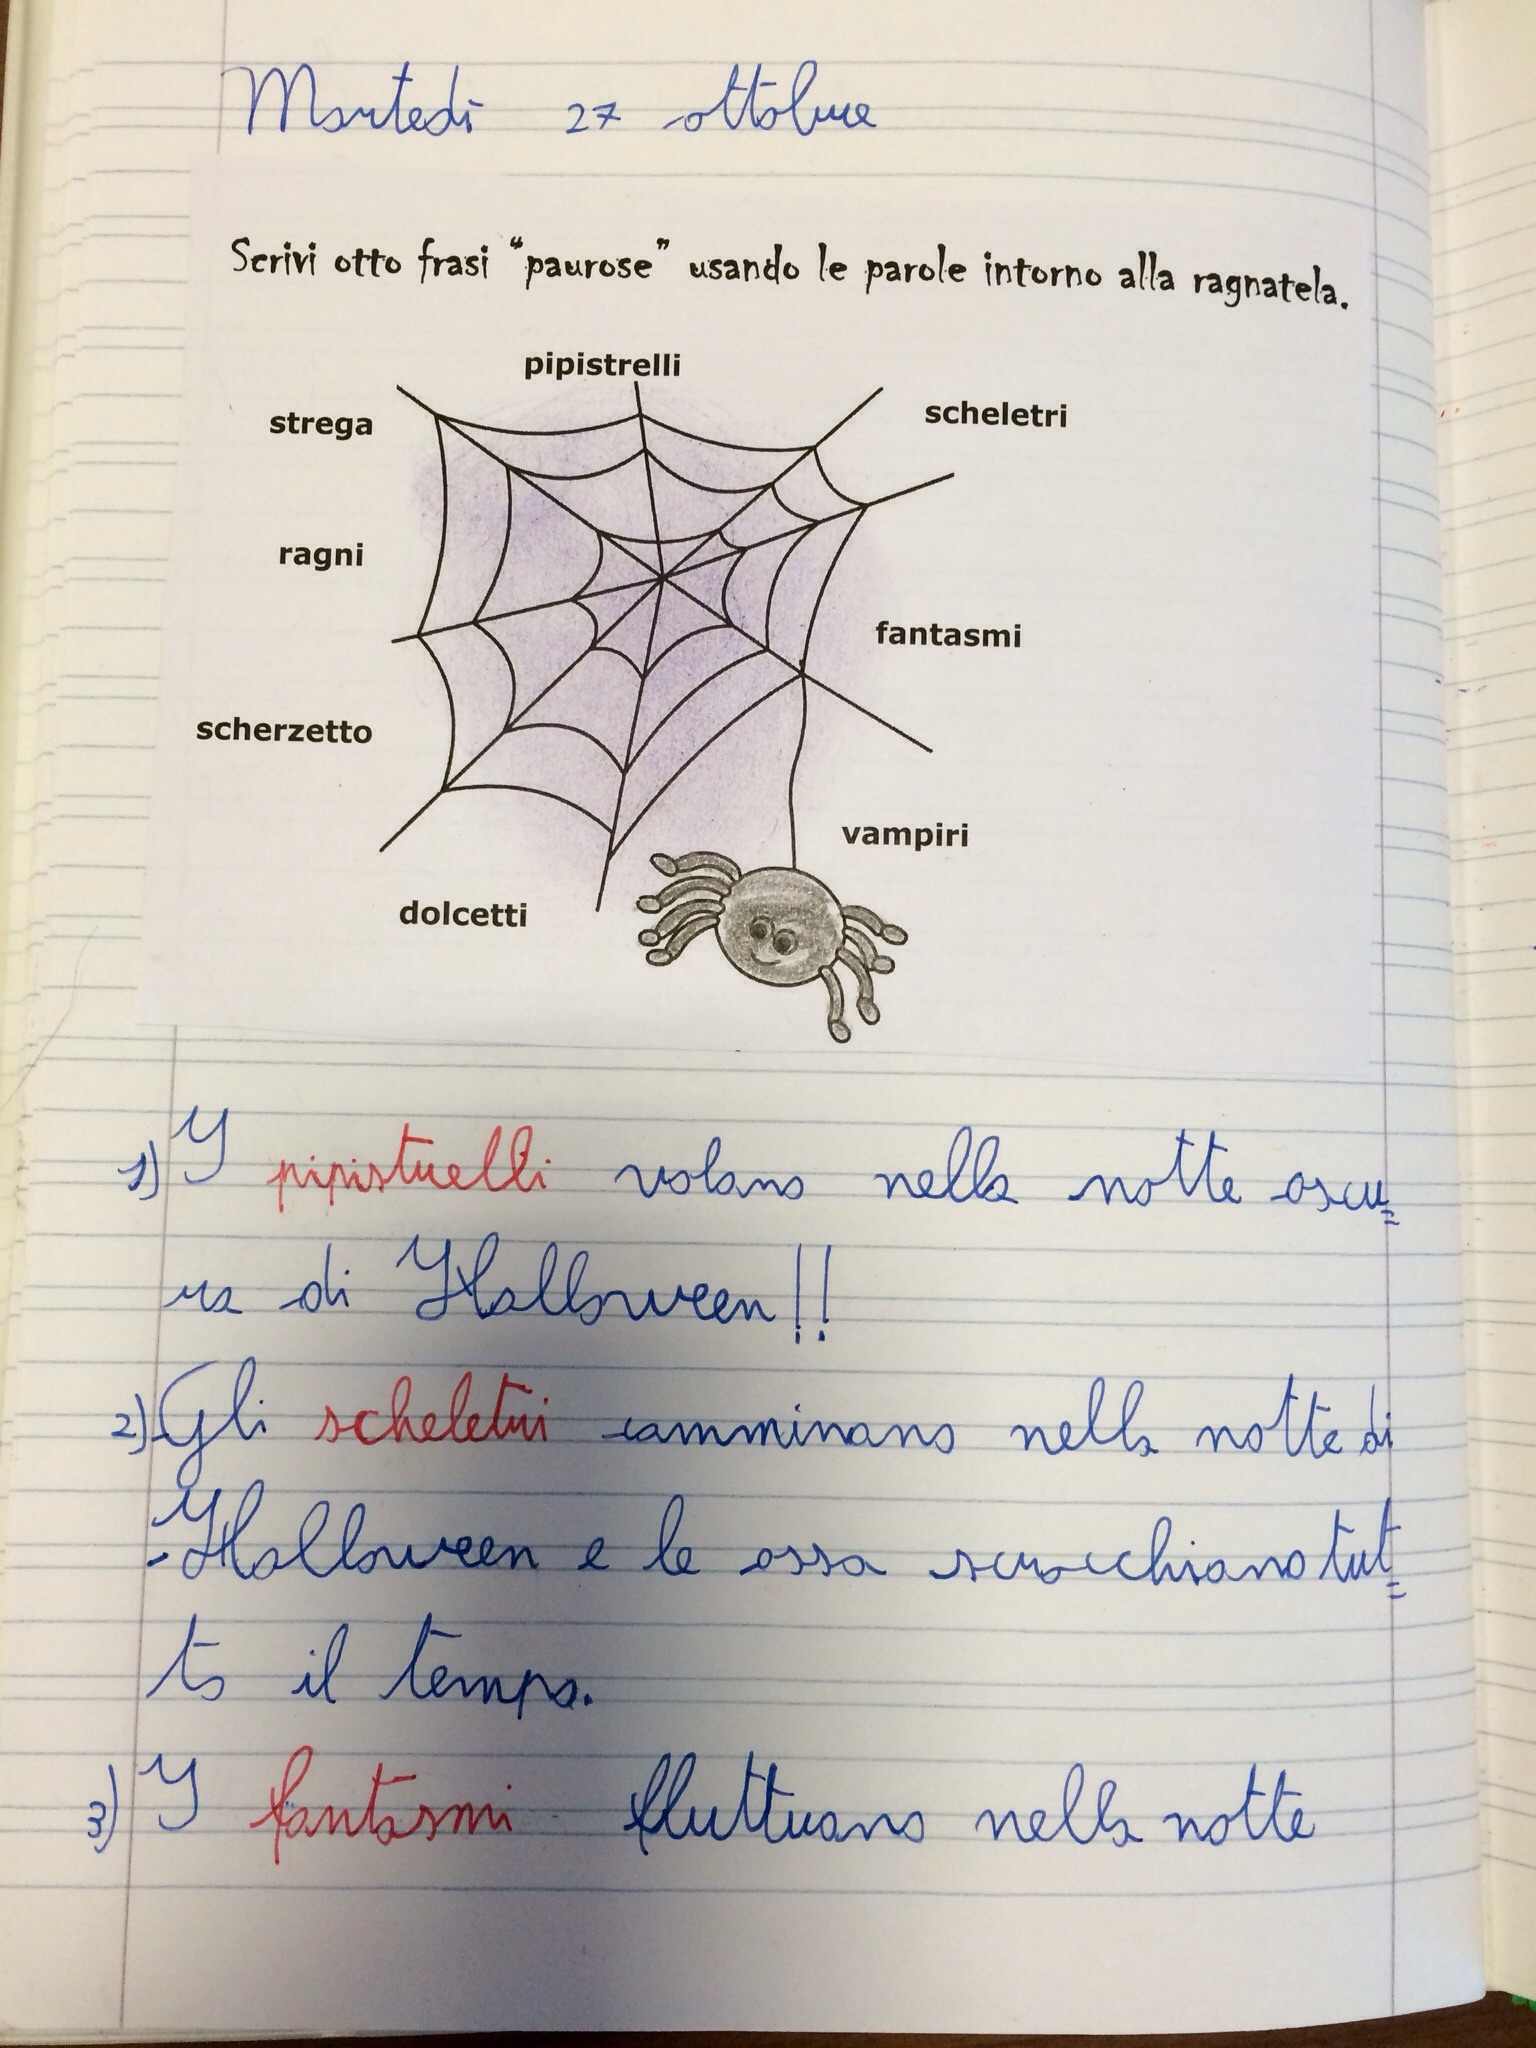 Martedì 27 ottobre
Scrivi otto frasi “paurose” usando le parole intorno alla ragnatela.
pipistrelli
strega
scheletri
ragni
fantasmi
scherzetto
vampiri
dolcetti
1) I pipistrelli volano nella notte oscu=
ra di Halloween!!
2) Gli scheletri camminano nella notte di
Halloween e le ossa scrocchiano tut=
to il tempo.
3) I fantasmi fluttuano nella notte